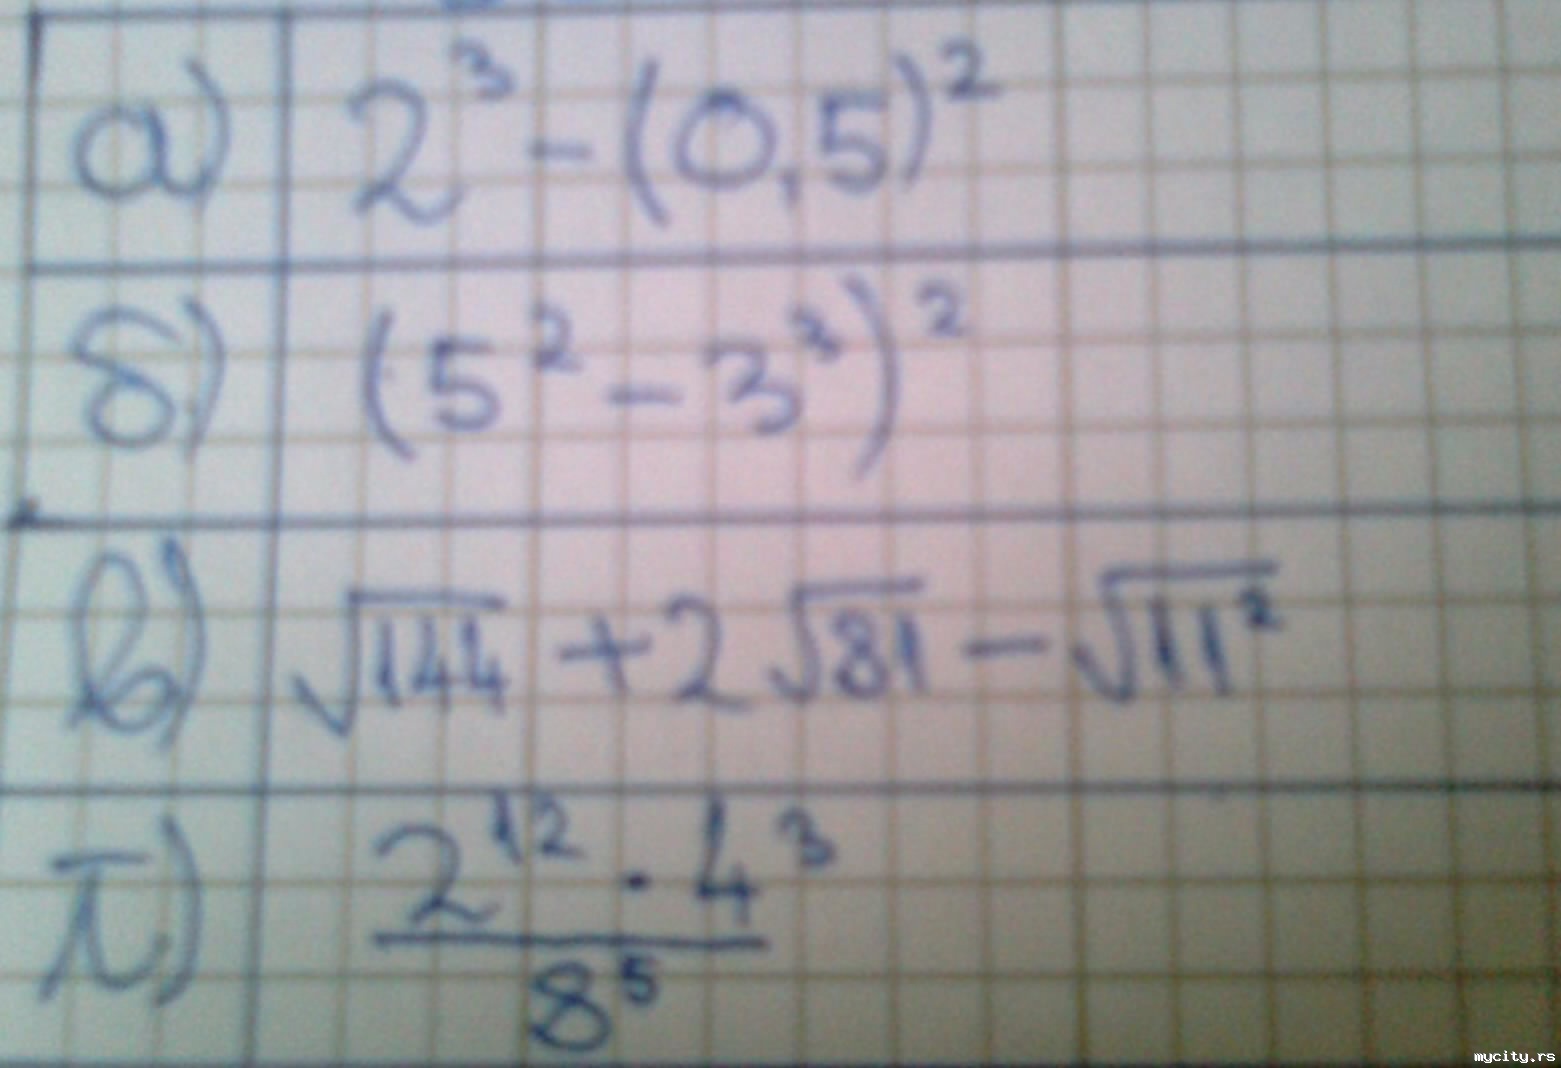 а) 2³ - (0,5)²
б) (5² - 3³)²
в) √144 + 2√81 - √11²
г) 2¹² · 4³
8⁵
mycity.rs